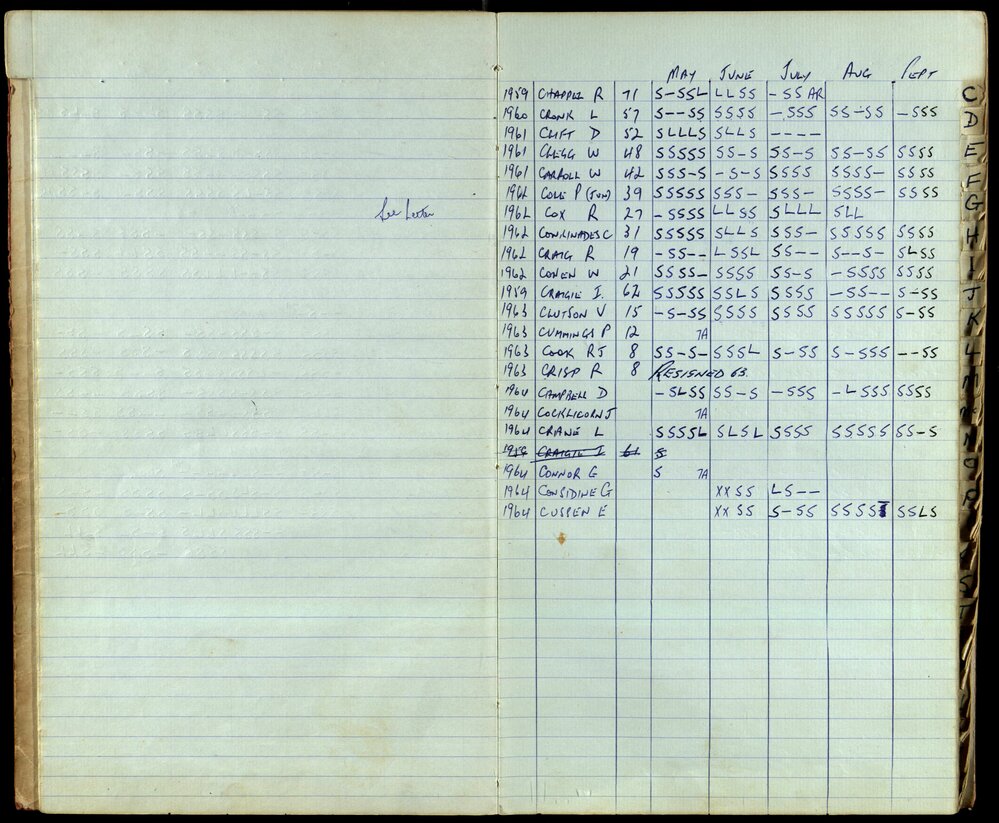 MAY JUNE JULY AUG SEPT
1959 CHAPPEL R 71 S-SSL LLSS -SSAR
1960 CRONK L 57 S--SS SSSS -SSS SS-SS -SSS
1961 CLIFT D 52 SLLLS SLLS ----
1961 CLEGG W 48 SSSSS SS-S SS-S SS-SS SSSS
1961 CARROLL W 42 SSS-S -S-S SSSS SSSS- SSSS
1962 COLE P (JUN) 39 SSSSS SSS- SSS- SSSS- SSSS
See Letter
1962 COX R 27 -SSSS LLSS SLLL SLL
1962 31 SSSSS SLLS SSS- SSSSS SSSS
1962 CRAIG R 19 -SS-- L-SSL SS-- S--S- SLSS
1962 COHEN W 21 SSSS- SSSS SS-S -SSSS SSSS
1959 CRAIGIE I. 62 SSSSS SSLS SSSS -SS-- S-SS
1963 CLUTSON V 15 -S-SS SSSS SSSS SSSSS S-SS
1963 CUMMINGS P 12 7A
1963 COOK RJ 8 SS-S- SSSL S-SS S-SSS --SS
1963 CRISP R 8 RESIGNED 63
1964 CAMPBELL D -SLSS SS-S -SSS -LSSS SSSS
1964 COCKLICORN J 7A
1964 CRANE L SSSSL SLSL SSSS SSSSS SS-S
1959 CRAIGIE I 61 S
1964 CONNOR G S 7A
1964 CONSIDINE G XXSS LS--
1964 CUSPEN E XXSS S-SS SSSS SSLS
C
D
E
F
G
H
I
J
K
L
M
N
O
R
S
T